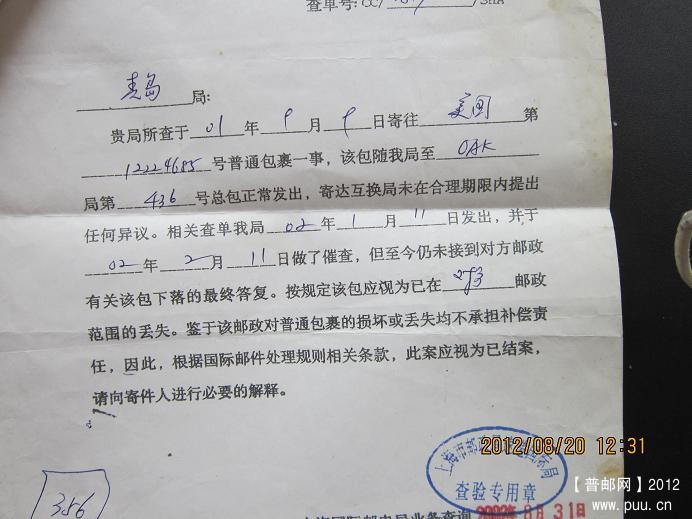 查单号:CC/ /SHA
青岛 局:
贵局所查于 01 年 9 月 9 日寄往 美国 第
12224685 号普通包裹一事，该包随我局至 OAK
局第 436 号总包正常发出，寄达互换局未在合理期限内提出
任何异议。相关查单我局 02 年 1 月 11 日发出，并于
02 年 2 月 11 日做了催查，但至今仍未接到对方邮政
有关该包下落的最终答复。按规定该包应视为已在 邮政
范围的丢失。鉴于该邮政对普通包裹的损坏或丢失均不承担补偿责
任，因此，根据国际邮件处理规则相关条款，此案应视为已结案，
请向寄件人进行必要的解释。
2012/08/20 12:31
上海市邮政 局
查验专用章
356
上海国际邮电局业务查询
8月31日
【普邮网】2012
www.puu.cn